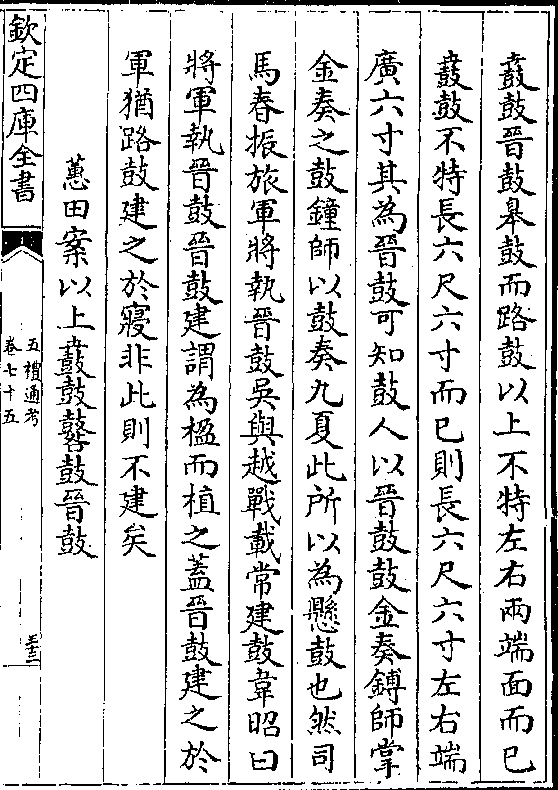 鼖鼓晉鼓臯鼓而路鼓以上不特左右兩端面而已
鼖鼓不特長六尺六寸而已則長六尺六寸左右端
廣六寸其為晉鼓可知鼓人以晉鼓鼓金奏鎛師掌
金奏之鼓鐘師以鼓奏九夏此所以為懸鼓也然司
馬春振旅軍將執晉鼓吳與越戰載常建鼓韋昭曰
將軍執晉鼓晉鼓建謂為楹而植之蓋晉鼓建之於
軍猶路鼓建之於寢非此則不建矣
蕙田案以上鼖鼓鼛鼓晉鼓
欽定四庫全書
五禮通考
卷七十五